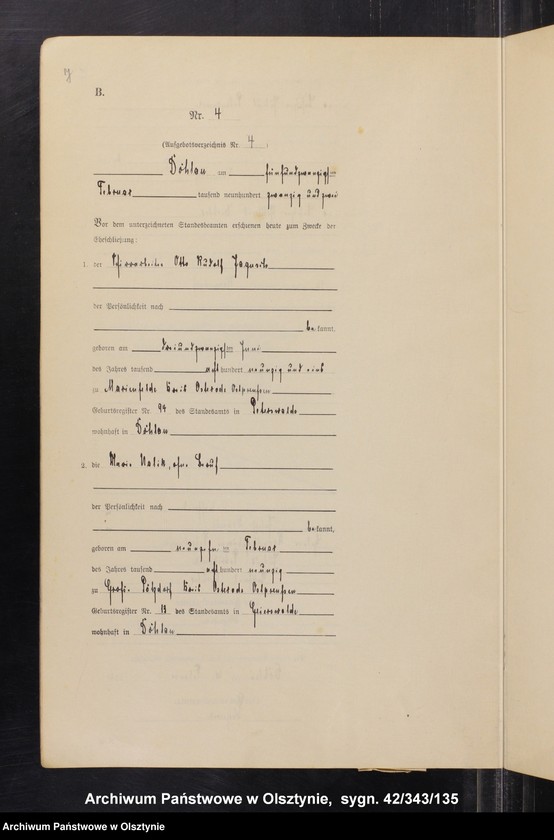 B.
Nr. 4
(Aufgebotsverzeichnis Nr. 4)
Döhlau am fünfundzwanzigsten
Februar tausend neunhundert zwanzig und zwei
Vor dem unterzeichneten Standesbeamten erschienen heute zum Zwecke der
Eheschließung:
1. der Otto Rudolf
der Persönlichkeit nach
bekannt,
geboren am dreiundzwanzigsten Juni
des Jahres tausend achthundert neunzig und eins
zu Marienfelde Kreis Osterode Ostpreußen
Geburtsregister Nr. 94 des Standesamts in Peterswalde
wohnhaft in Döhlau
2. die Marie, ohne Beruf
der Persönlichkeit nach
bekannt,
geboren am neunzehnten Februar
des Jahres tausend achthundert neunzig
zu Groß Kreis Osterode Ostpreußen
Geburtsregister Nr. 13 des Standesamts in Geierswalde
wohnhaft in Döhlau
Archiwum Państwowe w Olsztynie, sygn. 42/343/135
Archiwum Państwowe w Olsztynie